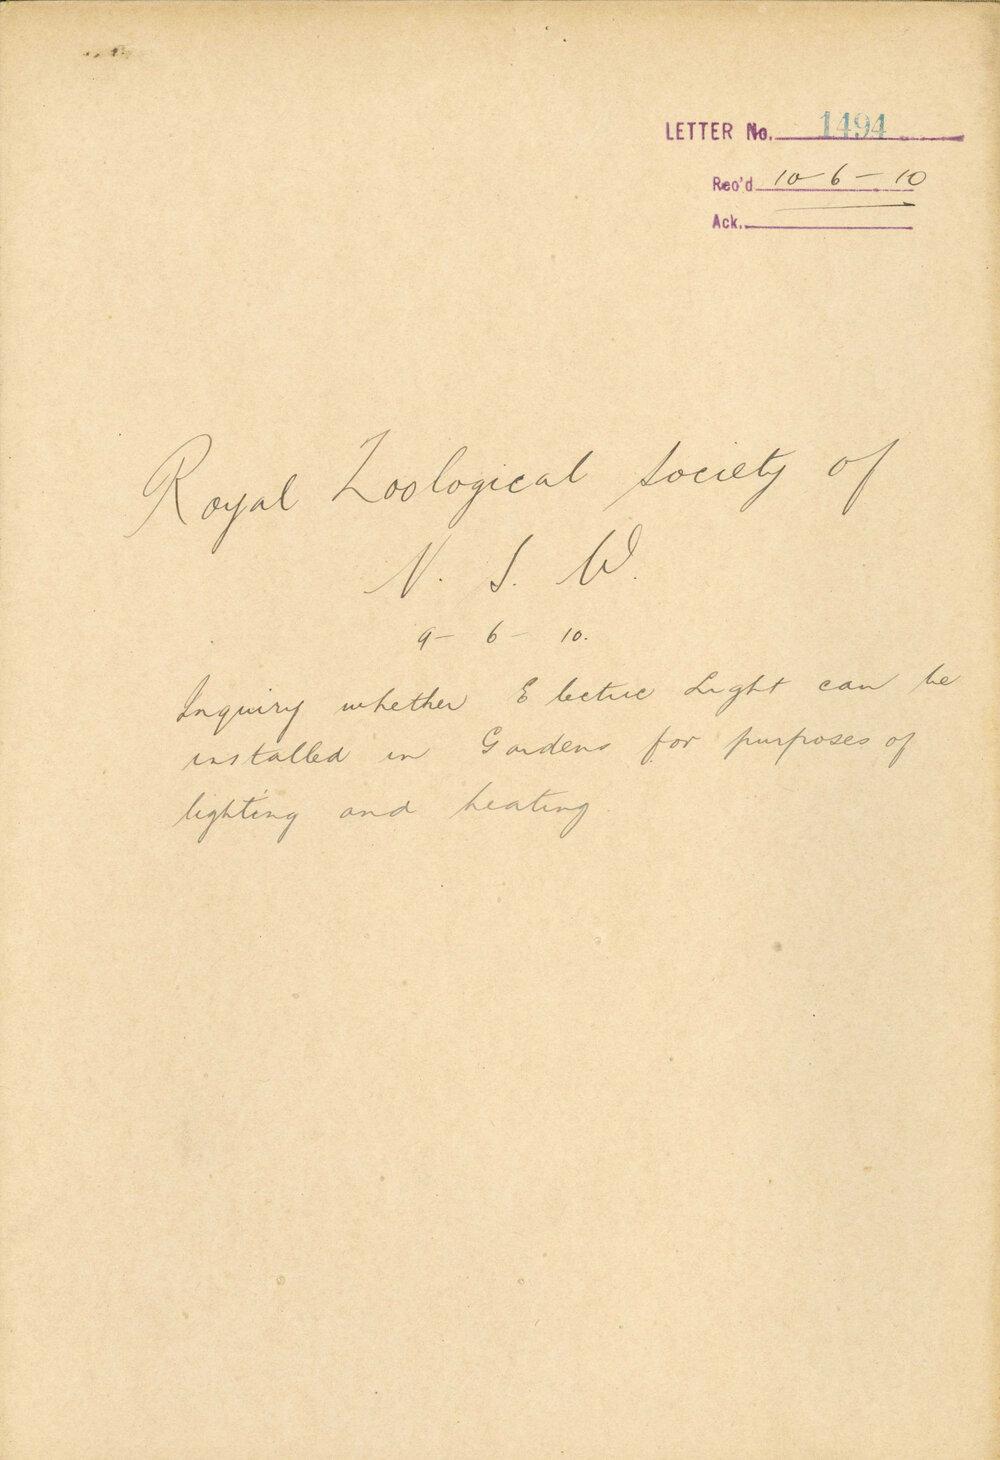 LETTER No. 1494
Rec'd 10-6-10
Ack.
Royal Zoological Society of
N. S. W.
9-6-10.
Inquiry whether Electric Light can be
installed in Gardens for purposes of
lighting and heating.